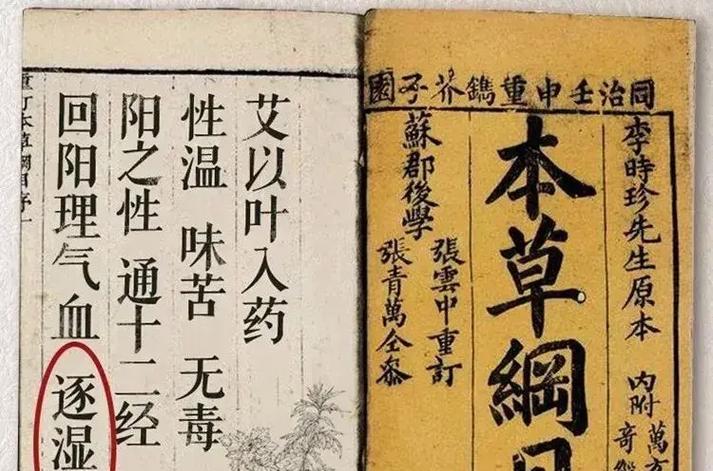 同治壬申重鐫芥子園
李時珍先生原本
内附
萬
奇
本草綱
張雲中重訂
張青萬仝參
蘇郡後學
艾以叶入药
性温 味苦 无毒
阳之性 通十二经
回阳理气血 逐湿